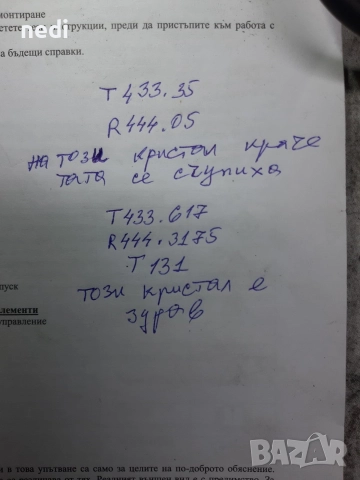 монтиране
nedi
струкции, преди да пристъпите към работа с
а бъдещи справки.
T433.35
R444.05
на този кристал краче
тата се счупиха
T433.617
R444.3175
T131
този кристал е
здрав
пуск
лементи
управление
и в това упътване са само за целите на по-доброто обяснение.
BAZAR